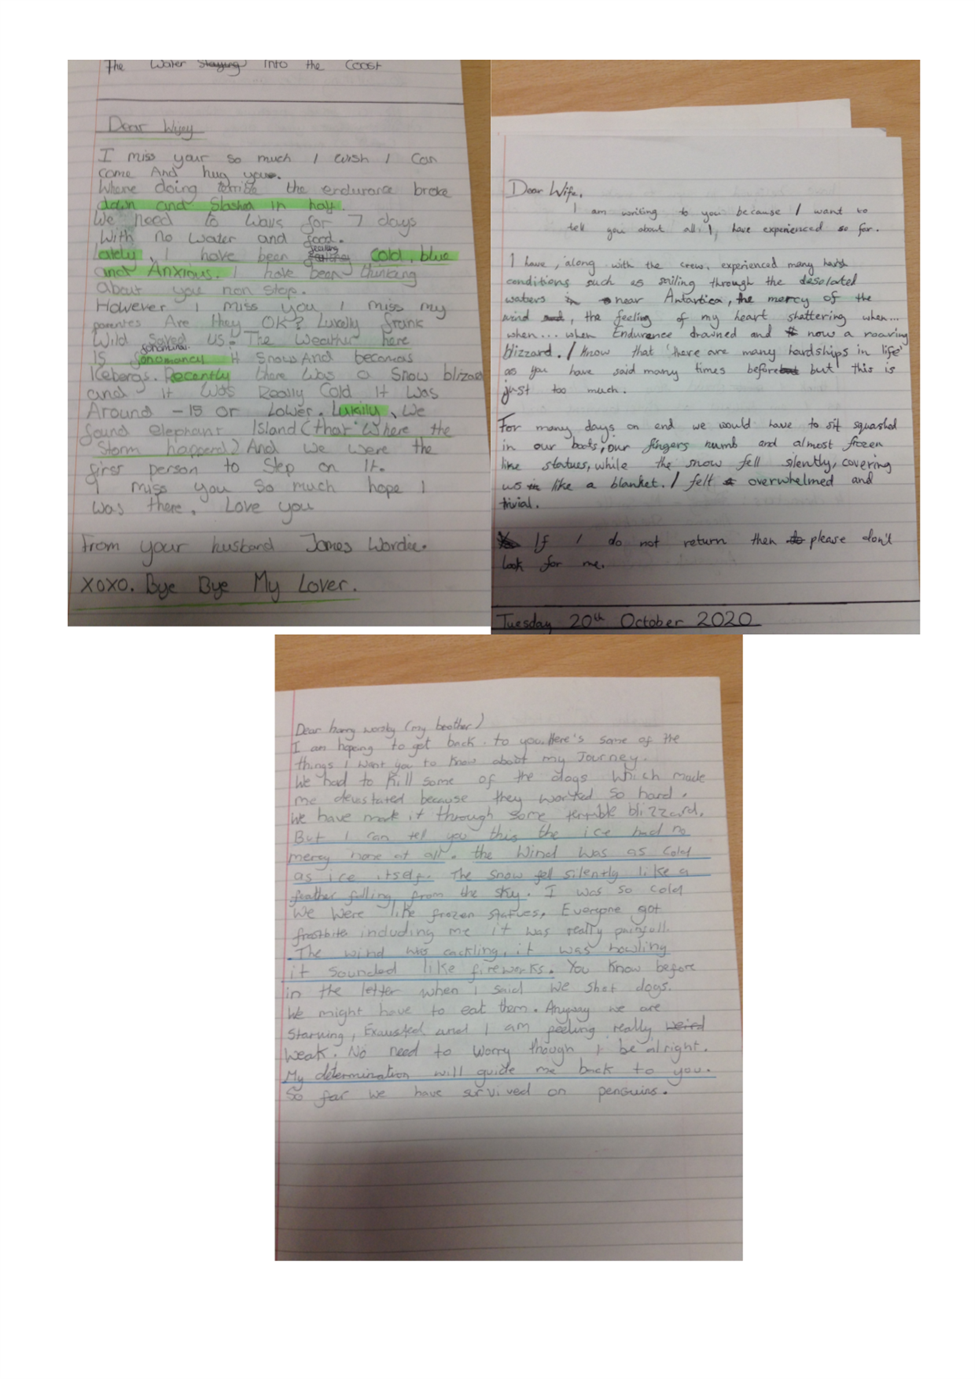 The Water Stagging Into the Coast
Dear Wifey
I miss your so much I wish I Can
come And hug you.
Where doing terrible the endurance broke
down and Slashed in half.
We need to Wave for 7 days
With no Water and food.
lately, I have been feeling cold, blue
and Anxious. I have been thinking
About you non stop.
However I miss you I miss my
parentes Are they OK? Lukaly Frank
Wild Saved us. The Weather here
Is It Snows And becomes
Icebergs. Recently there was a Snow blizard
and it Was Really Cold It Was
Around -18 or Lower. Lukaily, We
found elephant Island (that Where the
Storm happend) And We Were the
first person to Step on It.
I miss you So much hope I
Was there, Love you
From your husband James Wordie.
xoxo. Bye Bye My Lover.
Dear Wife,
I am writing to you because I want to
tell you about all I, have experienced so far.
I have, along with the crew, experienced many harsh
conditions such as smiling through the desolated
waters near Antartica, the mercy of the
wind, the feeling of my heart shattering when...
when... when Endurance drained and now a roaring
blizzard. I know that 'there are many hardships in life'
as you have said many times before but this is
just too much.
For many days on end we would have to sit squashed
in our boats, our fingers numb and almost frozen
like statues, while the snow fell silently, covering
us like a blanket. I felt overwhelmed and
trivial.
If I do not return then please don't
look for me.
Tuesday 20th October 2020
Dear harry worsly (my brother)
I am hoping to get back to you. Here's some of the
things I want you to know about my Journey.
We had to Kill some of the dogs Which made
me devastated because they worked so hard.
We have made it through some terrible blizzard.
But I can tell you this the ice had no
mercy none at all. the Wind Was as cold
as ice itself. The snow fel silently like a
feather falling from the sky. I was so cold
We Were like frozen statues. Everyone got
frostbite including me it was really painfull.
The wind was cackling, it was howling
it sounded like fireworks. You Know before
in the letter when I said We shot dogs.
We might have to eat them. Anyway we are
Starving, Exausted and I am feeling really weird
Weak. No need to Worry though I be alright.
My determination will guide me back to you.
So far we have survived on penguins.